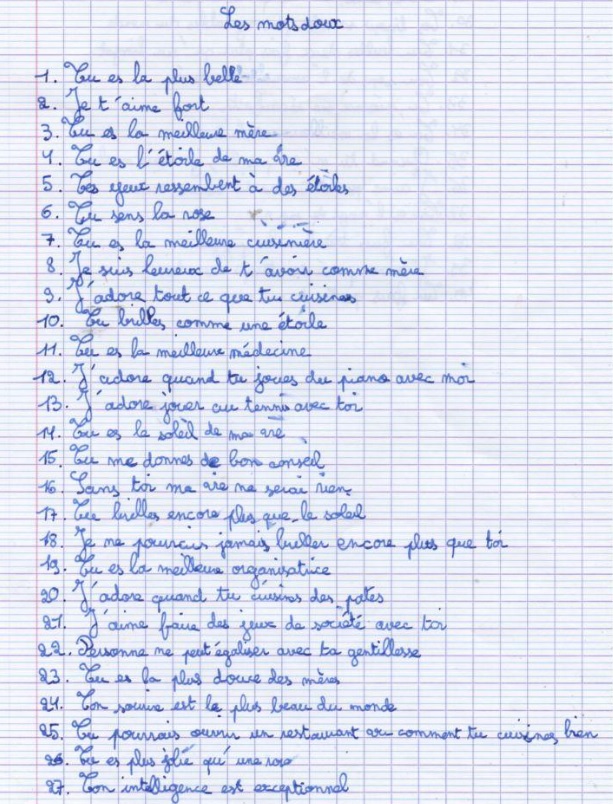 Les mots doux
1. Tu es la plus belle
2. Je t'aime fort
3. Tu es la meilleure mère
4. Tu es l'étoile de ma vie
5. Tes yeux ressembent à des étoiles
6. Tu sens la rose
7. Tu es la meilleure cuisinière
8. Je suis heureux de t'avoir comme mère
9. J'adore tout ce que tu cuisines
10. Tu brilles comme une étoile
11. Tu es la meilleure médecine
12. J'adore quand tu joues du piano avec moi
13. J'adore jouer au tennis avec toi
14. Tu es le soleil de ma vie
15. Tu me donnes de bon conseil
16. Sans toi ma vie ne serai rien
17. Tu brilles encore plus que le soleil
18. Je ne pourrais jamais briller encore plus que toi
19. Tu es la meilleure organisatrice
20. J'adore quand tu cuisines des pates
21. J'aime faire des jeux de société avec toi
22. Personne ne peut égaliser avec ta gentillesse
23. Tu es la plus douce des mères
24. Ton sourire est le plus beau du monde
25. Tu pourrais ouvrir un restaurant vu comment tu cuisines bien
26. Tu es plus jolie qu'une rose
27. Ton intelligence est exceptionnel